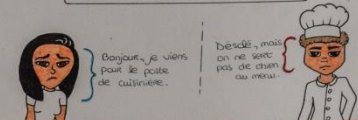 Bonjour, je viens
pour le poste
de cuisinière.
Désolé, mais
on ne sert
pas de chien
au menu.